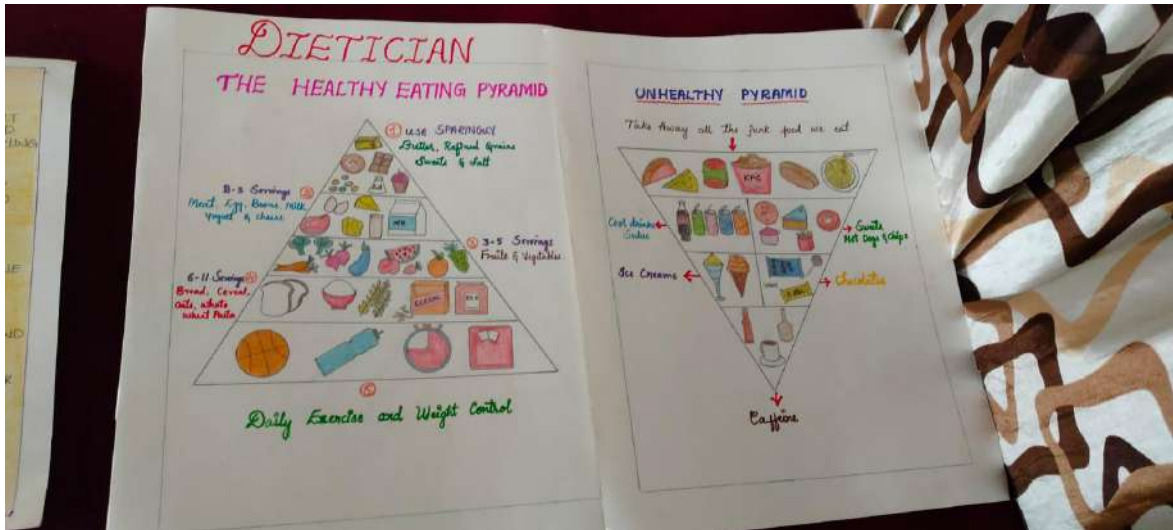 DIETICIAN
THE HEALTHY EATING PYRAMID
① USE SPARINGLY
Butter, Refined Grains
Sweets & Salt
Servings
Meat, Egg, Beans, Milk
Yogurt & cheese
3-5 Servings
Fruits & Vegetables
6-11 Servings
Bread, Cereal,
Oats, Whole
Wheat Pasta
CEREAL
Daily Exercise and Weight Control
UNHEALTHY PYRAMID
Take Away all the junk food we eat
KFC
Cool drinks
Sodas
Sweets
Hot Dogs & Chips
Ice Creams
Chocolates
Caffeine